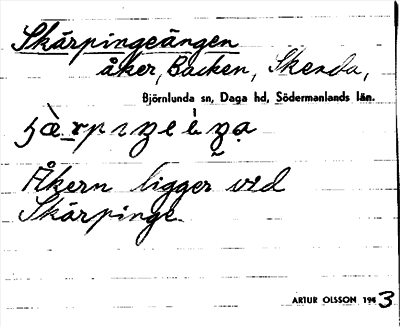 Skärpingeängen
åker, Backen, Skenda,
Björnlunda sn, Daga hd, Södermanlands län.
Åkern ligger vid
Skärpinge.
ARTUR OLSSON 1963